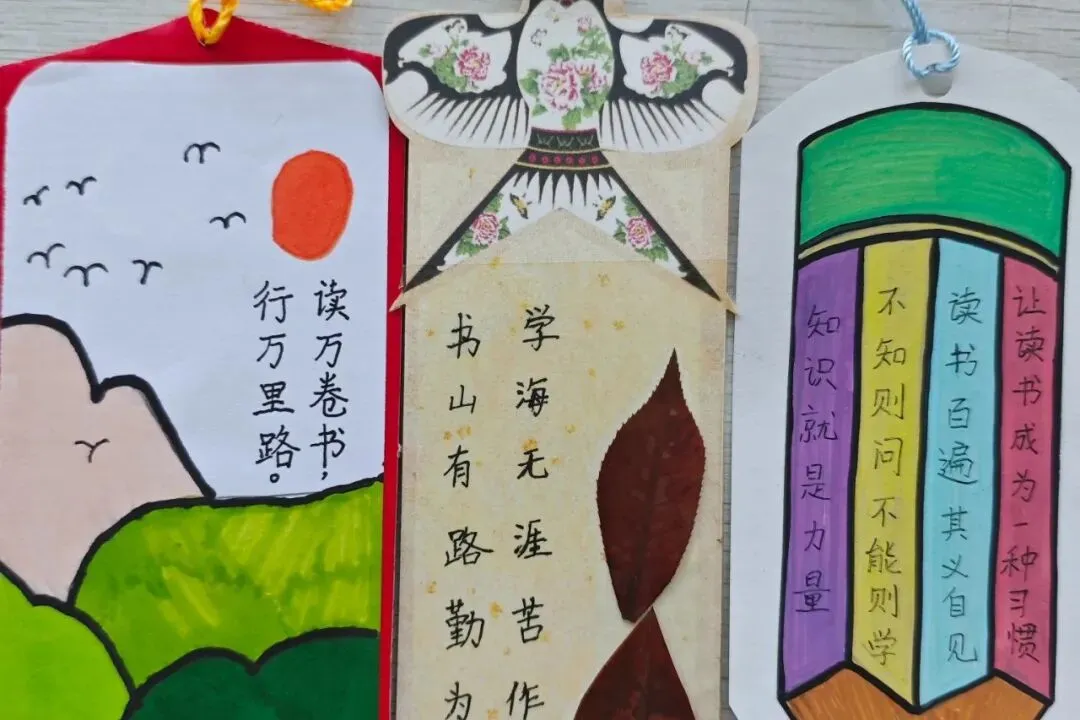 读万卷书，
行万里路。
书山有路勤为
学海无涯苦作
知识就是力量
不知则问不能则学
读书百遍其义自见
让读书成为一种习惯